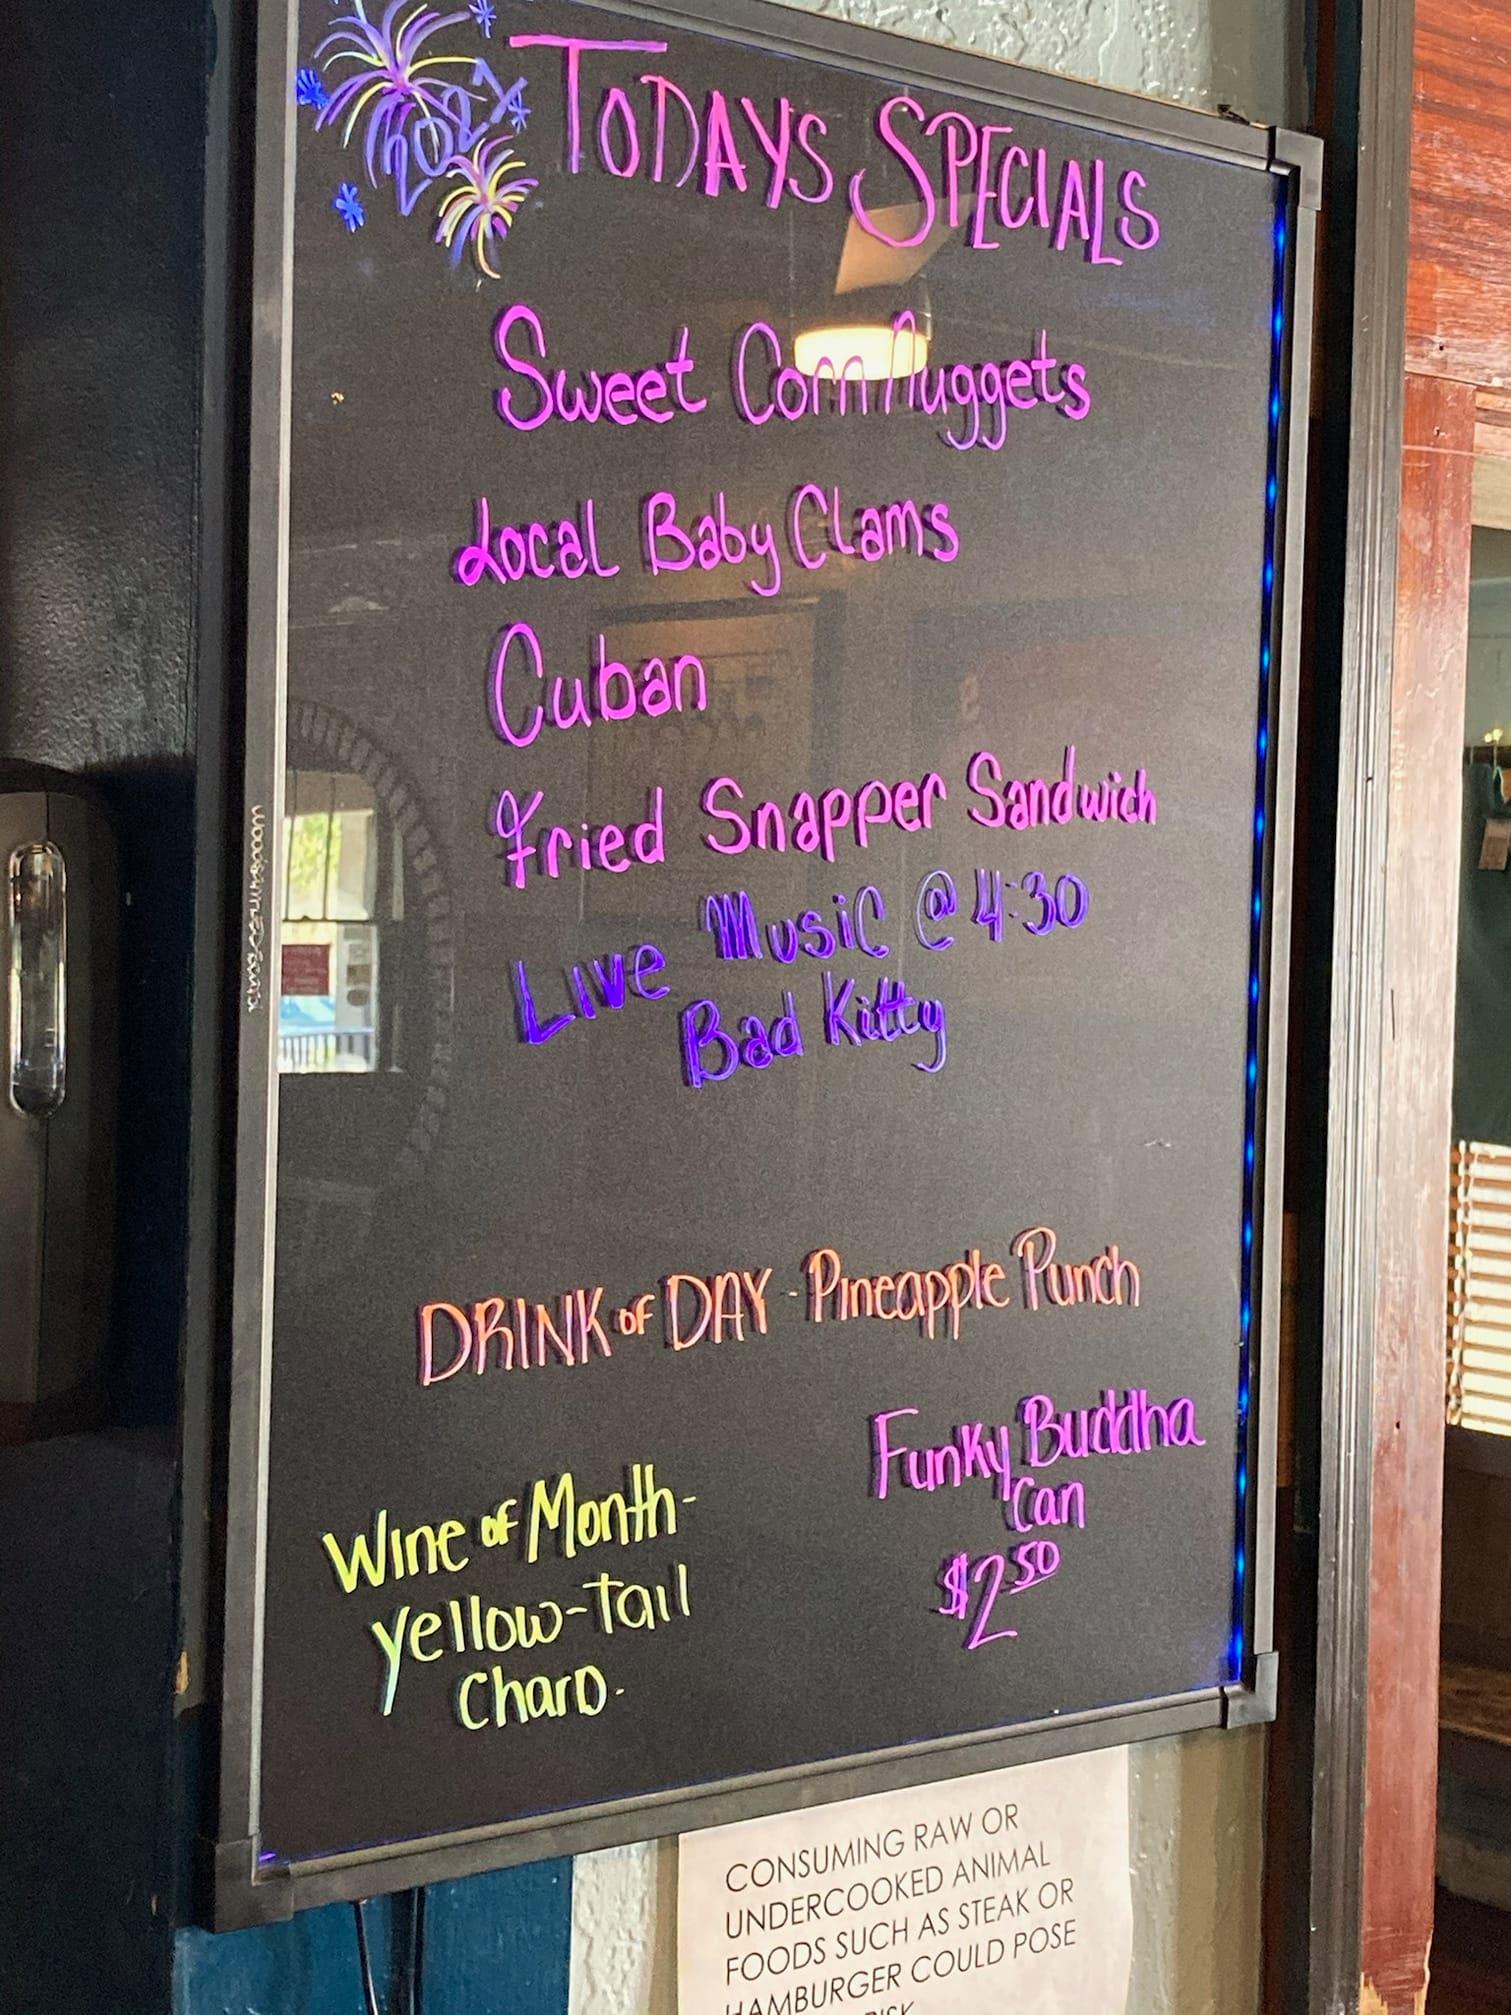 2021
TODAYS SPECIALS
Sweet Corn Nuggets
Local Baby Clams
Cuban
Fried Snapper Sandwich
Live Music @ 4:30
Bad Kitty
DRINK OF DAY - Pineapple Punch
Funky Buddha
Can
$2.50
Wine of Month-
Yellow-tail
Chard.
CONSUMING RAW OR
UNDERCOOKED ANIMAL
FOODS SUCH AS STEAK OR
HAMBURGER COULD POSE
RISK